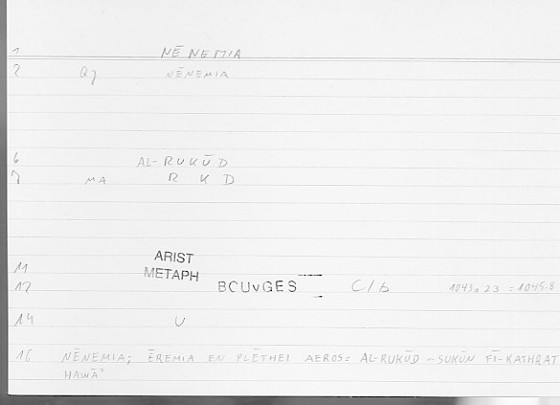 1 NĒNEMIA
2 Qj NĒNEMIA
6 AL-RUKŪD
7 MA R K D
11 ARIST
METAPH
12 BOUYGES C/b 1043a23 = 1045.8
14 U
16 NĒNEMIA; ĒREMIA EN PLĒTHEI AEROS = AL-RUKŪD – SUKŪN FĪ-KATHRAT
HAWĀʾ